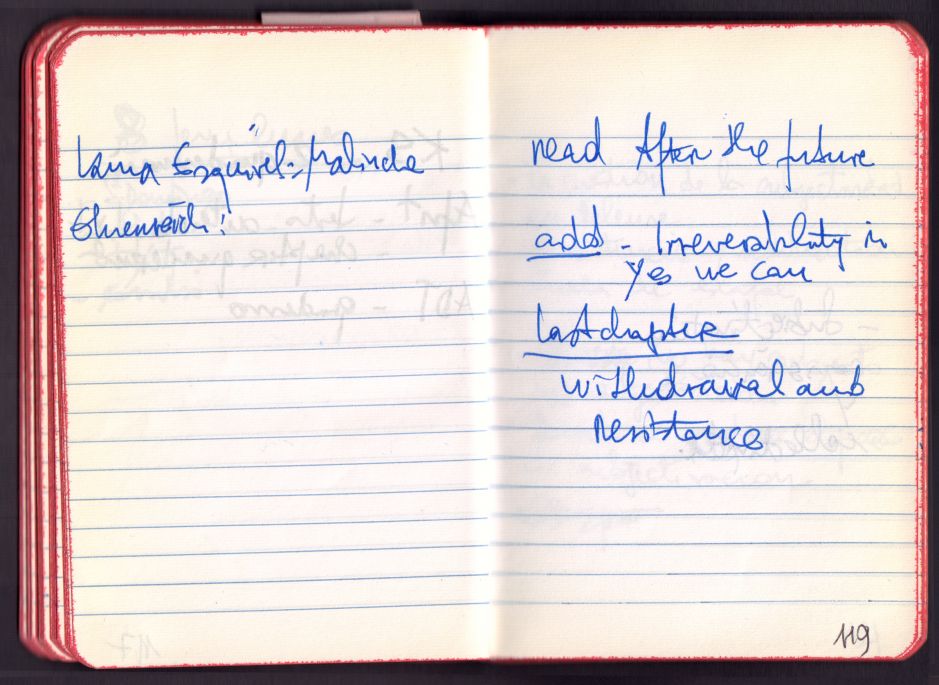 Laura Esquivel: Malinche
Ehrenreich!
read After the future
add - Irreversability in
Yes we can
last chapter
withdrawal and
resistance
119